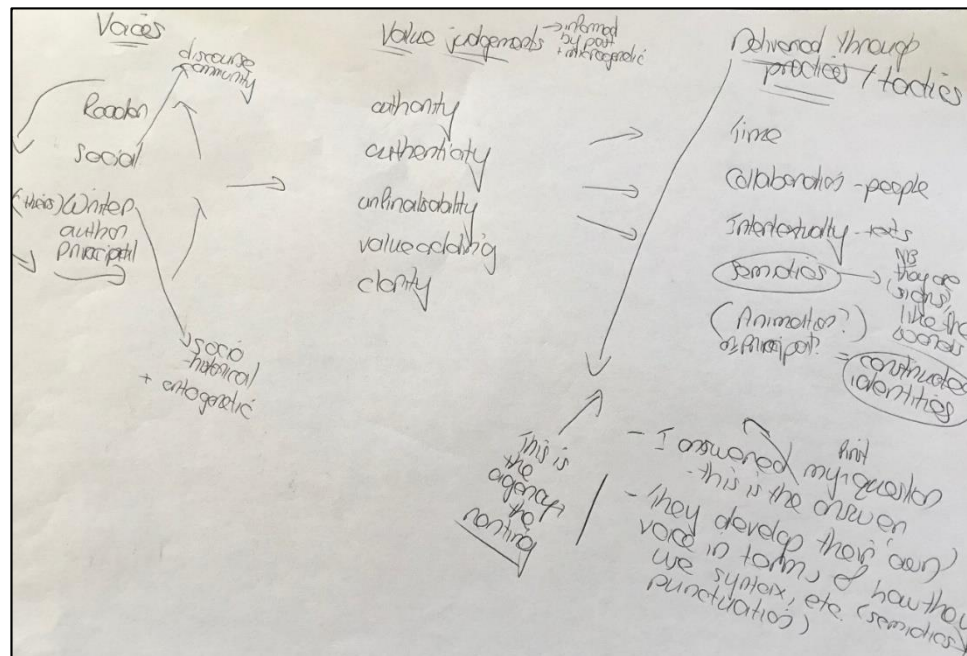 Voices
discourse
community
Reader
social
(theirs) writer
author
principal
socio
-historical
+ ontogenetic
Value judgements → informed
by past
+ microgenetic
authority
authenticity
unfinalisability
value adding
clarity
Delivered through
practices / tactics
Time
Collaboration - people
Intertextuality - texts
semiotics
NB
they are
'signs',
like the
words
(Animation?)
or principal?
= constructed
identities
This is
the
agency +
the
noticing
- I answered my first question
- this is the answer
- They develop their (own)
voice in terms of how they
use syntax, etc. (semiotics,
punctuation)